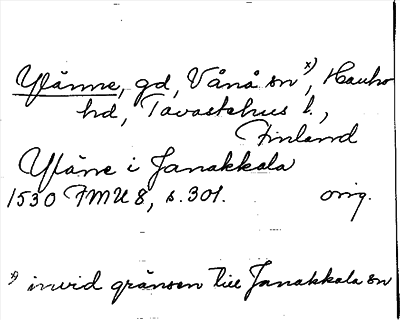 Yläinne, gd, Vånå sn x), Hauho
hd, Tavastehus l.,
Finland
Yläne i Janakkala
1530 FMU 8, s. 301. orig.
x) invid gränsen till Janakkala sn